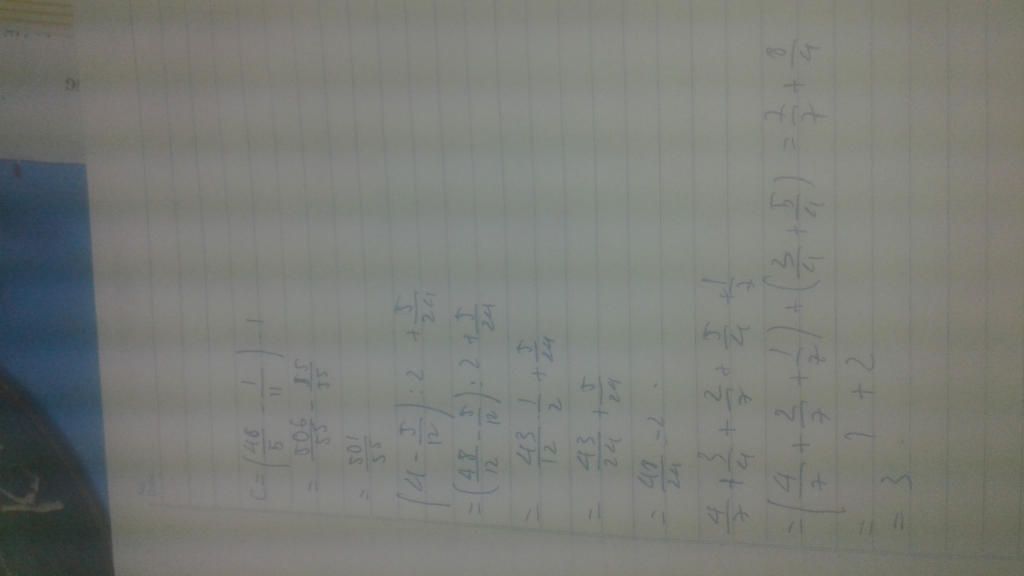 C = ( 46/5 - 1/11 ) . 1
= 506/55 - 85/55
= 501/55
( 4 - 5/12 ) : 2 + 5/24
= ( 48/12 - 5/12 ) : 2 + 5/24
= 43/12 . 1/2 + 5/24
= 43/24 + 5/24
= 48/24 = 2 .
4/7 + 3/4 + 2/7 + 5/4 + 1/7
= ( 4/7 + 2/7 + 1/7 ) + ( 3/4 + 5/4 ) = 7/7 + 8/4
= 1 + 2
= 3